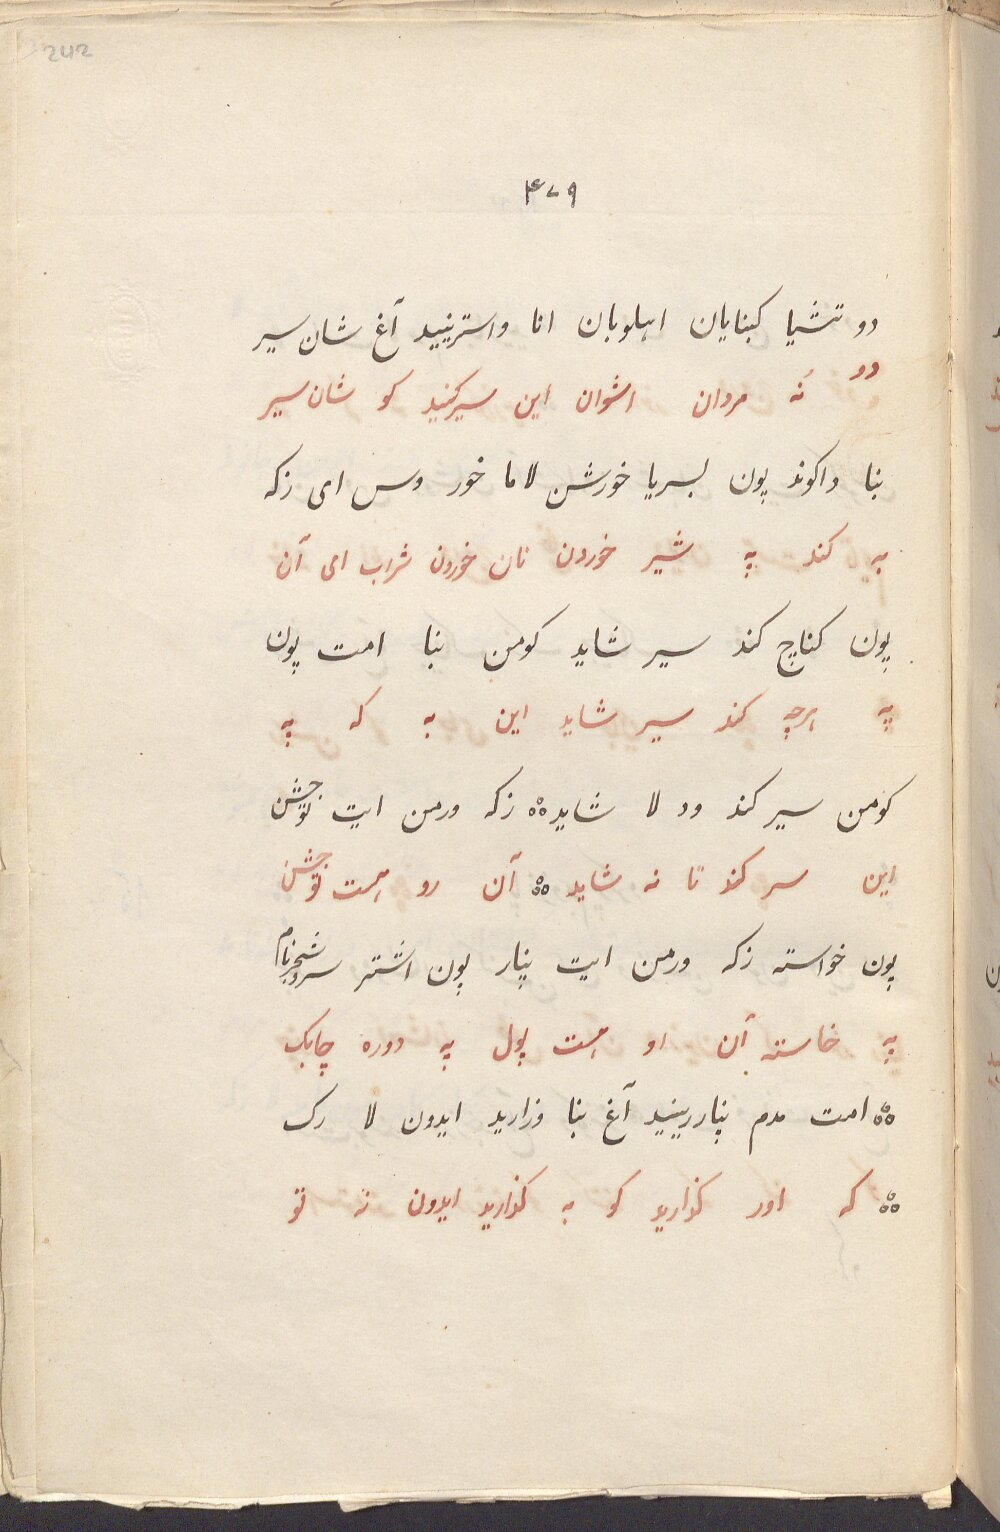 242
۴۷۹
دو تشیا کبنایان اہلوبان انا واسترینید آغ شان سیر
دو نه مردان اشوان این سیرکنید کو شان سیر
بنا واکوند پون بسریا خورشن لاما خور وس ای زکه
به کند په شیر خوردن نان خوردن شراب ای آن
پون کناچ کند سیر شاید کومن بنا امت پون
په هرچه کند سیر شاید این به که په
کومن سیر کند ود لا شاید ༚ زکه ورمن ایت توجشن
این سر کند تا نه شاید ༚ آن رو هست توجشن
پون خواسته زکه ورمن ایت پنار پون اشتر
په خاسته آن او هست پول په دوره چابک
امت مدم پنار رینید آغ بنا وزارید ایدون لا رک
که اور گذارید کو به گذارید ایدون نه تو